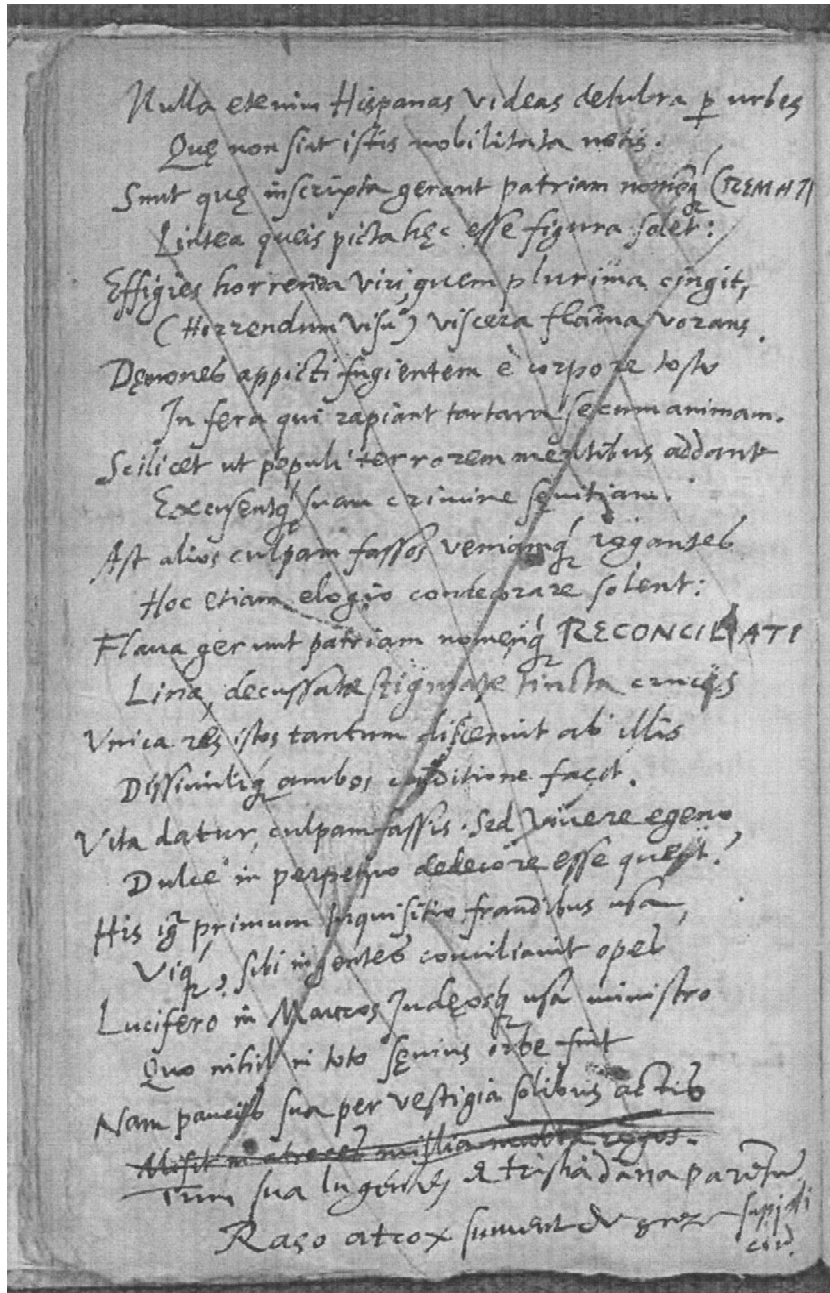 Nulla etenim Hispanas videas delubra p urbes
Quę non sint istis nobilitata notis.
Sunt quę inscripta gerant patriam nomenq́ CREMATI
Lintea queis picta hęc esse figura solet:
Effigies horrenda viri, quem plurima cingit,
(Horrendum visu) viscera flāma vorans.
Dęmones appicti fugientem è corpore tosto
In fera qui rapiant tartara secum animam.
Scilicet ut populi terrorem mentibus addant
Excusentq́ suam crimine sęvitiam.
Ast alios culpam fassos veniamq́ rogantes
Hoc etiam elogio condecorare solent:
Flava gerunt patriam nomenq́ RECONCILIATI
Lina, decussatæ stigmate tincta crucis
Vnica res istos tantum discernit ab illis
Dissimiliq́ ambos conditione facit.
Vita datur, culpam fassis. Sed vivere egeno
Dulce in perpetuo dedecore esse quest?
His igr primum Inquisitio fraudibus usa,
Viq́, sibi ingentes conciliavit opes
Lucifero in Mauros Judęosq́ usa ministro
Quo nihil in toto sęvius orbe fuit
Nam paucis sua per vestigia solibus actis
Misit in atroces millia multa rogos.
Tum sua lugentes & tristia dāna
Raso atrox sumunt de grege